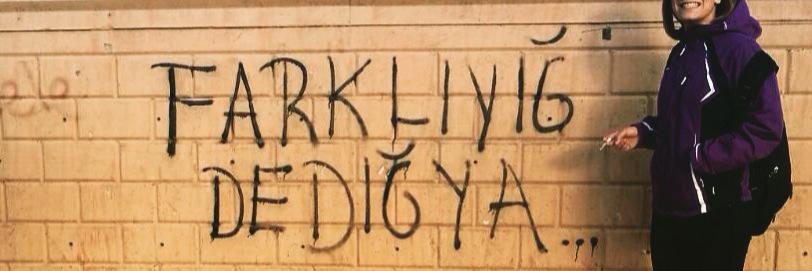 FARKLIYIĞ
DEDİĞYA...